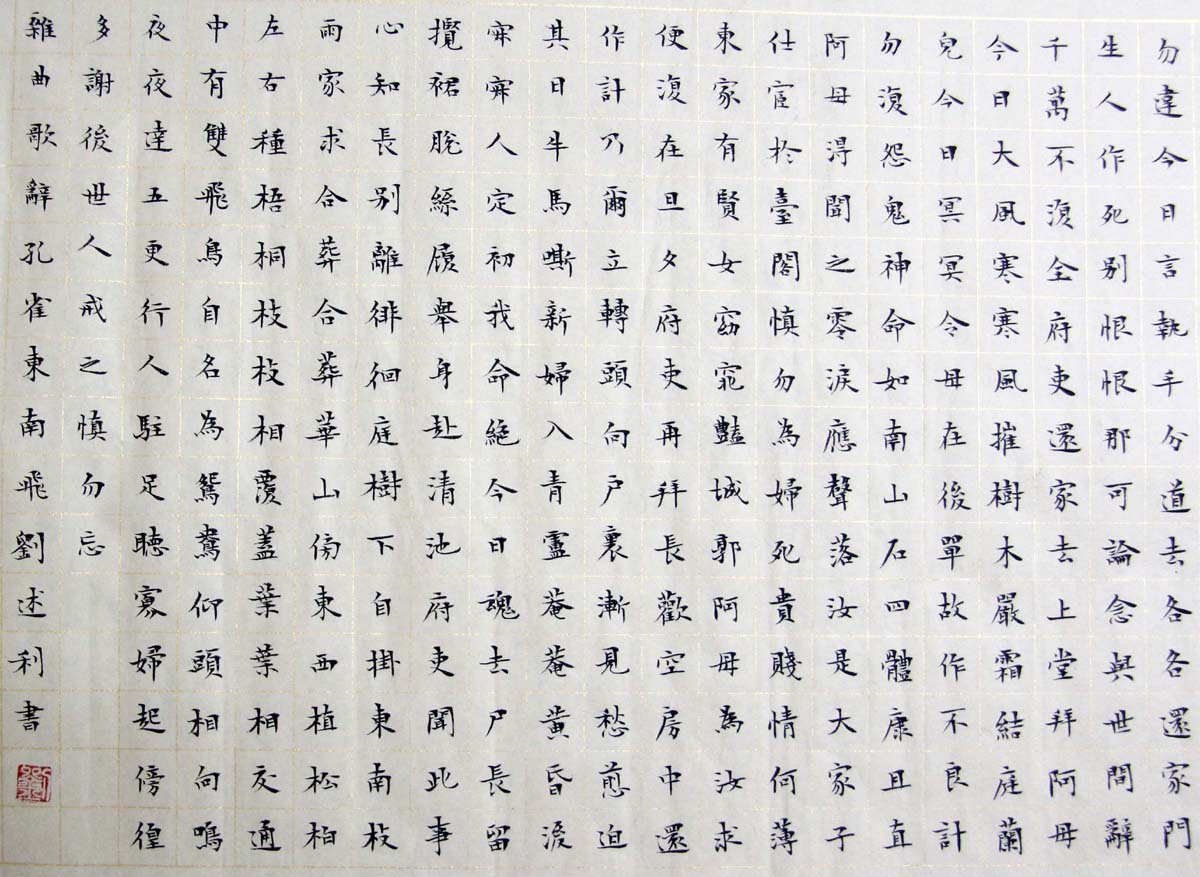 勿違今日言執手分道去各各還家門
生人作死別恨恨那可論念與世間辭
千萬不復全府吏還家去上堂拜阿母
今日大風寒寒風摧樹木嚴霜結庭蘭
兒今日冥冥令母在後單故作不良計
勿復怨鬼神命如南山石四體康且直
阿母得聞之零淚應聲落汝是大家子
仕宦於臺閣慎勿為婦死貴賤情何薄
東家有賢女窈窕豔城郭阿母為汝求
便復在旦夕府吏再拜長歡空房中還
作計乃爾立轉頭向戶裏漸見愁煎迫
其日牛馬嘶新婦入青廬菴菴黃昏後
寂寂人定初我命絕今日魂去尸長留
攬裙脫絲履舉身赴清池府吏聞此事
心知長別離徘徊庭樹下自掛東南枝
兩家求合葬合葬華山傍東西植松柏
左右種梧桐枝枝相覆蓋葉葉相交通
中有雙飛鳥自名為鴛鴦仰頭相向鳴
夜夜達五更行人駐足聽寡婦起傍徨
多謝後世人戒之慎勿忘
雜曲歌辭孔雀東南飛劉述利書